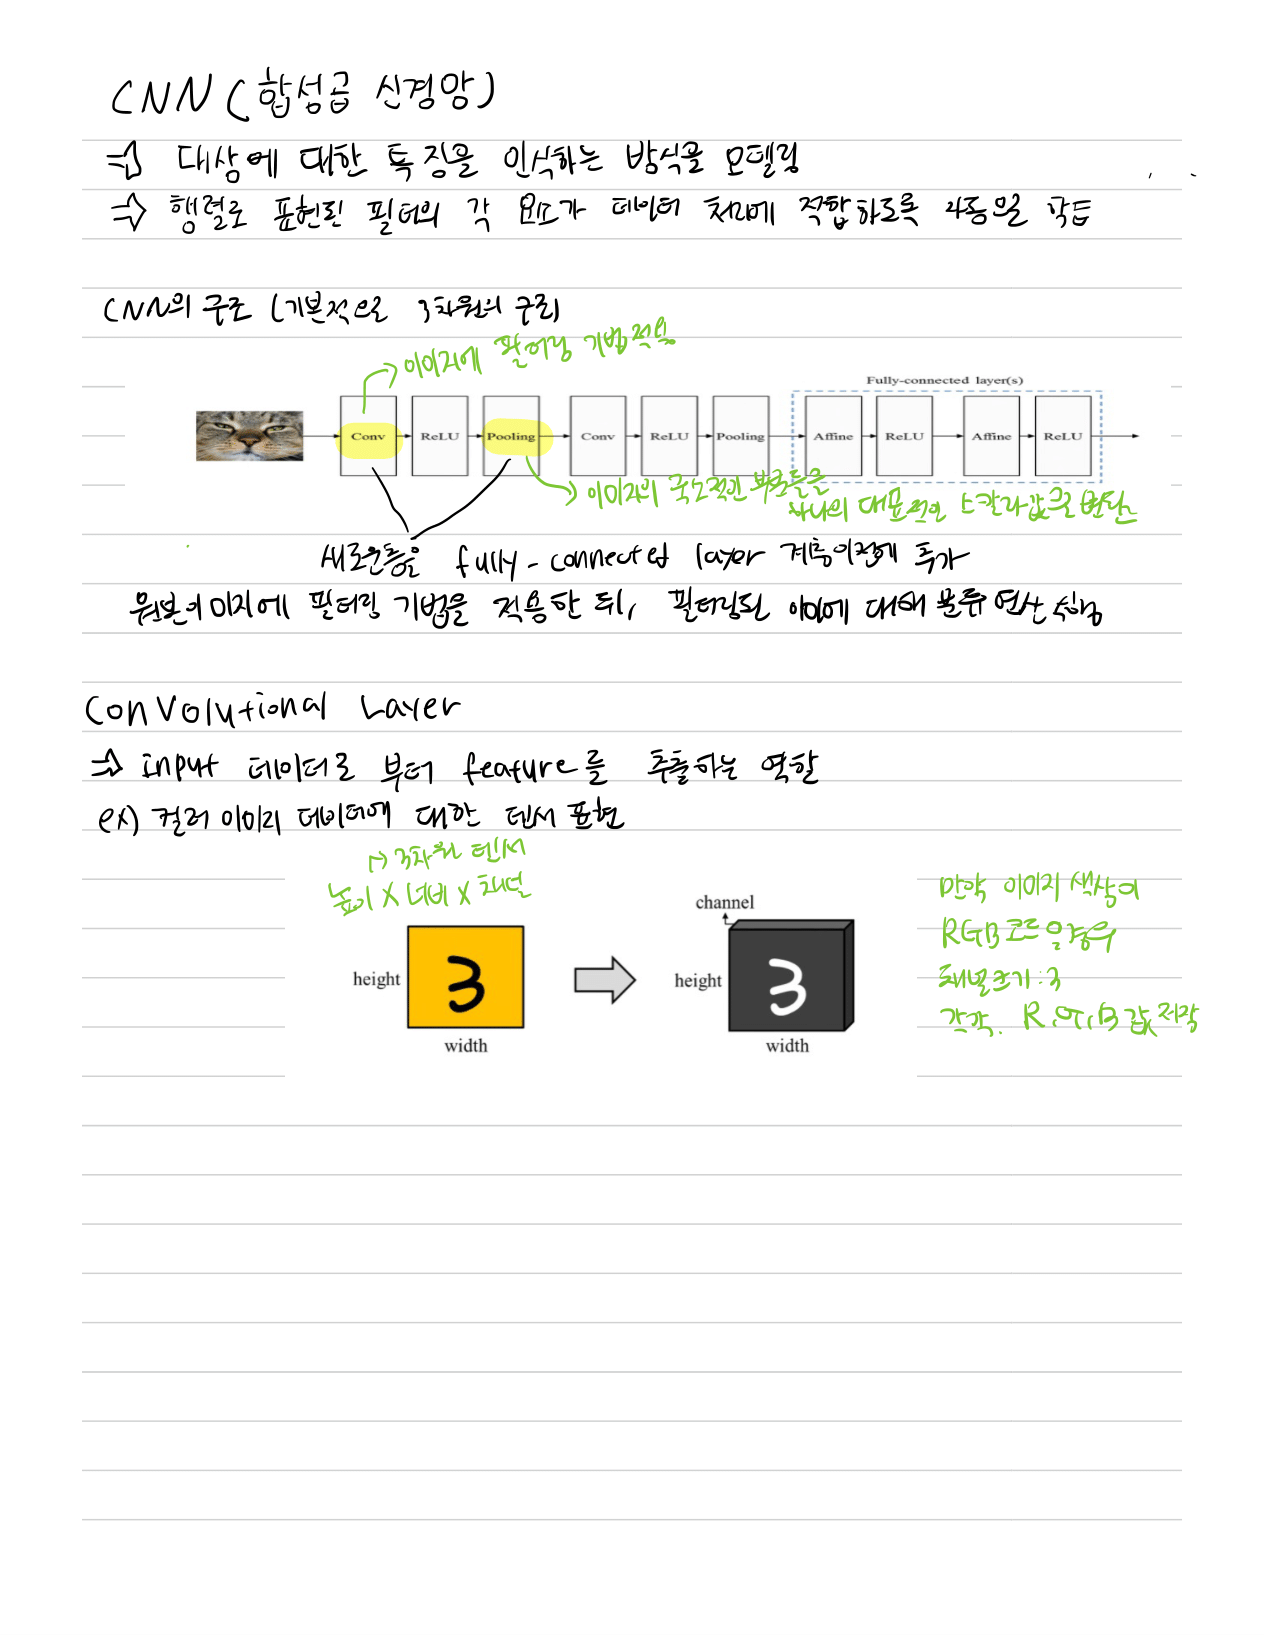 CNN (합성곱 신경망)
⇒ 대상에 대한 특징을 인식하는 방식을 모델링
⇒ 행렬로 표현된 필터의 각 요소가 데이터 처리에 적합하도록 자동으로 학습
CNN의 구조 (기본적으로 3차원의 구조)
→ 이미지에 필터링 기법적용
Fully-connected layer(s)
Conv ReLU Pooling Conv ReLU Pooling Affine ReLU Affine ReLU
→ 이미지의 국소적인 부분들을
하나의 대표적인 스칼라값으로 변환
새로운층을 fully-connected layer 계층이전에 추가
원본이미지에 필터링 기법을 적용한 뒤, 필터링된 이미에 대해 분류 연산 수행
Convolutional Layer
⇒ input 데이터로 부터 feature를 추출하는 역할
ex) 컬러 이미지 데이터에 대한 텐서 표현
→ 3차원 텐서
높이 X 너비 X 채널
channel
height
width
height
width
만약 이미지 색상이
RGB코드일경우
채널크기 : 3
각각. R, G, B 값 저장